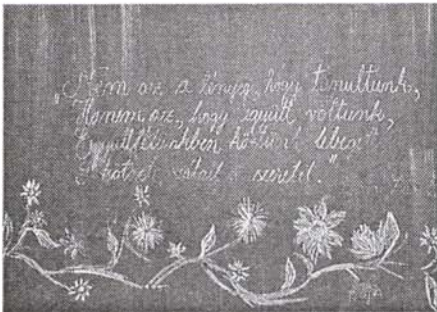 „Nem az a lényeg, hogy tanultunk,
Hanem az, hogy együtt voltunk,
Együttlétünkben köztünk lebegett
szálait a szeretet."